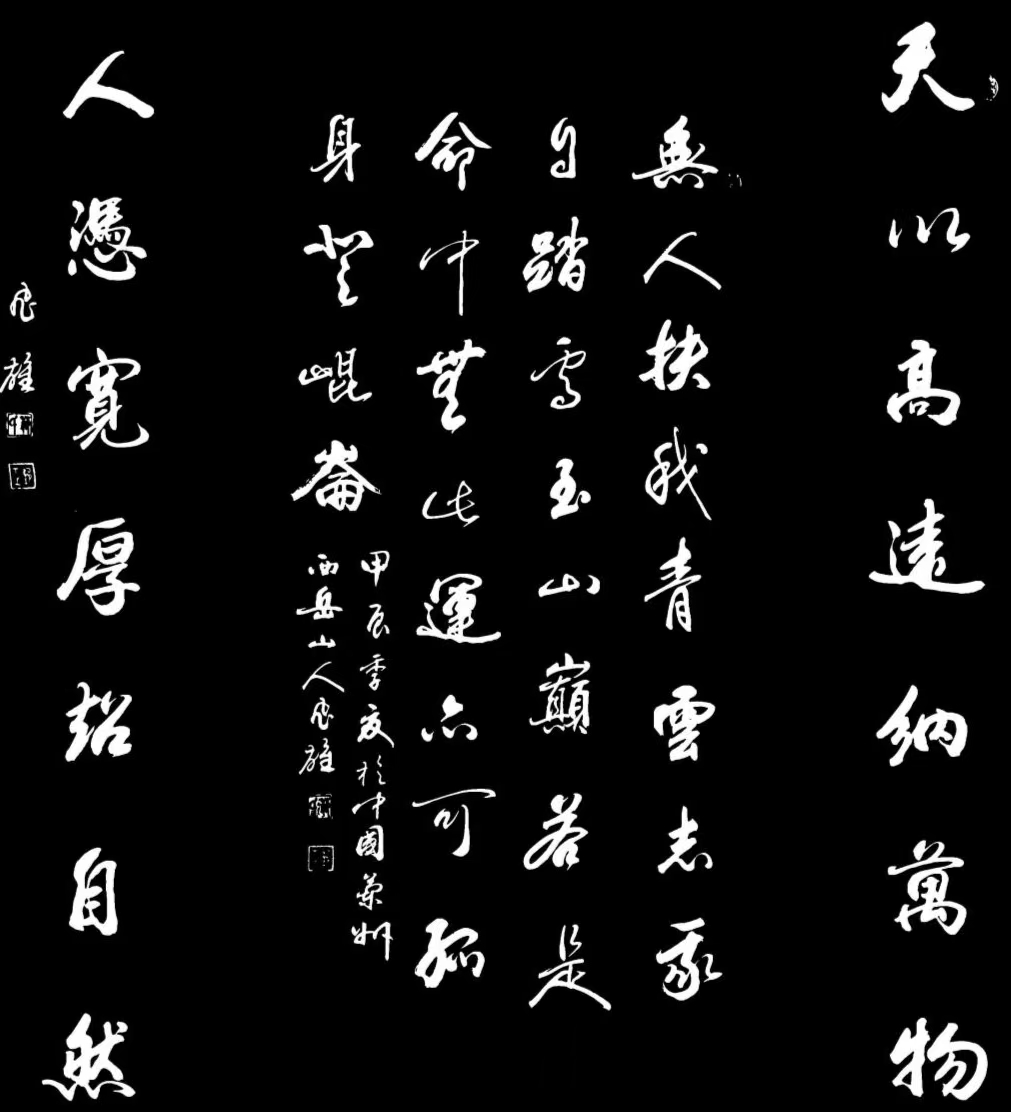 天以高遠納萬物
無人扶我青雲志我
自踏雪至山巔若是
命中無此運亦可孤
身登崑崙
甲辰季夏於中國蘭州
西岳山人雄
人憑寬厚超自然
雄